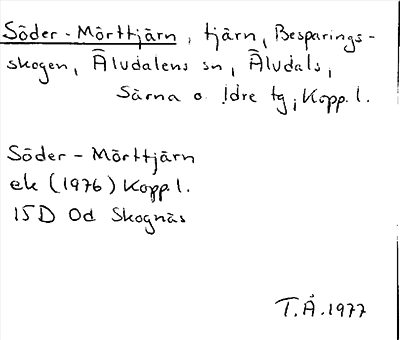 Söder-Mörttjärn, tjärn, Besparings-
skogen, Äludalens sn, Äludals,
Särna o. Idre tg, Kopp. l.
Söder-Mörttjärn
ek (1976) Kopp l.
15D 0d Skognäs
T.Å. 1977